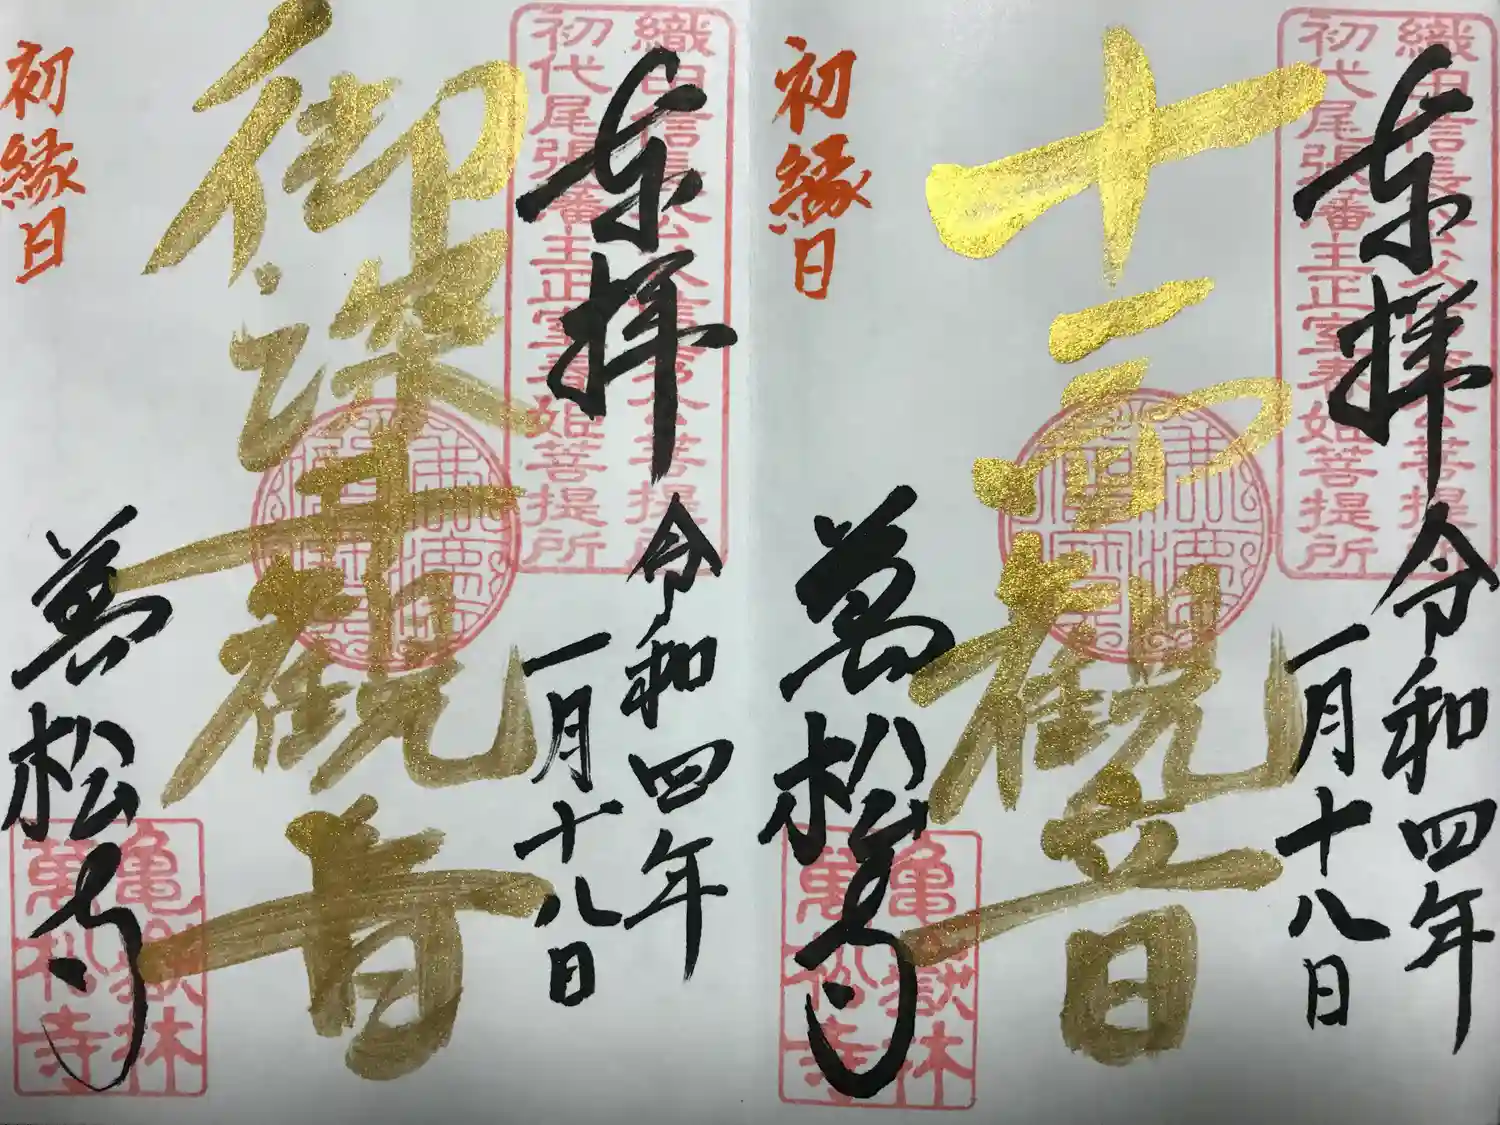 奉拝
令和四年
一月十八日
織田信長
公菩提所
初代尾張藩主正室春姫菩提所
十一面観音
初縁日
萬松寺
亀嶽林
萬松寺
奉拝
令和四年
一月十八日
織田信長
菩提所
初代尾張藩主正室春姫菩提所
御深井観音
初縁日
萬松寺
亀嶽林
萬松寺